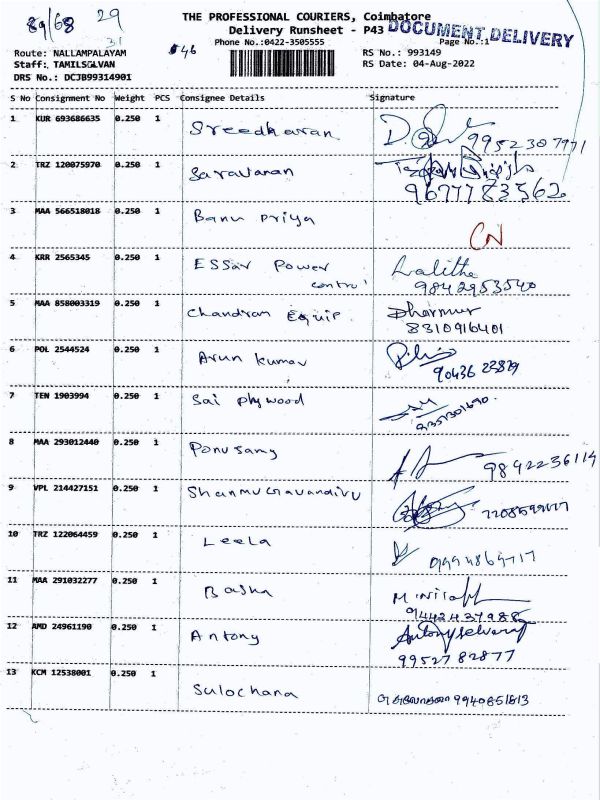 89/68 29
31
THE PROFESSIONAL COURIERS, Coimbatore
Delivery Runsheet - P43
DOCUMENT DELIVERY
Phone No.:0422-3505555
Page No.:1
Route: NALLAMPALAYAM
46
RS No.: 993149
Staff: TAMILSELVAN
RS Date: 04-Aug-2022
DRS No.: DCJB99314901
S No Consignment No Weight PCS Consignee Details Signature
1 KUR 693686635 0.250 1 Sreedharan 9952307971
2 TRZ 120075970 0.250 1 Saravanan 9677783562
3 MAA 566518018 0.250 1 Banu Priya CN
4 KRR 2565345 0.250 1 ESSar Power control Lalitha 9842953540
5 MAA 858003319 0.250 1 Chandran Equip Dharmur 8310916401
6 POL 2544524 0.250 1 Arun kumar 90436 23829
7 TEN 1903994 0.250 1 Sai plywood
8 MAA 293012440 0.250 1 Ponusamy 9842236114
9 VPL 214427151 0.250 1 Shanmugavandivu
10 TRZ 122064459 0.250 1 Leela
11 MAA 291032277 0.250 1 9442437988
12 AMD 24961190 0.250 1 Antony Antonyselvaraj 9952782877
13 KCM 12538001 0.250 1 Sulochana சுலோசனா 9940851813